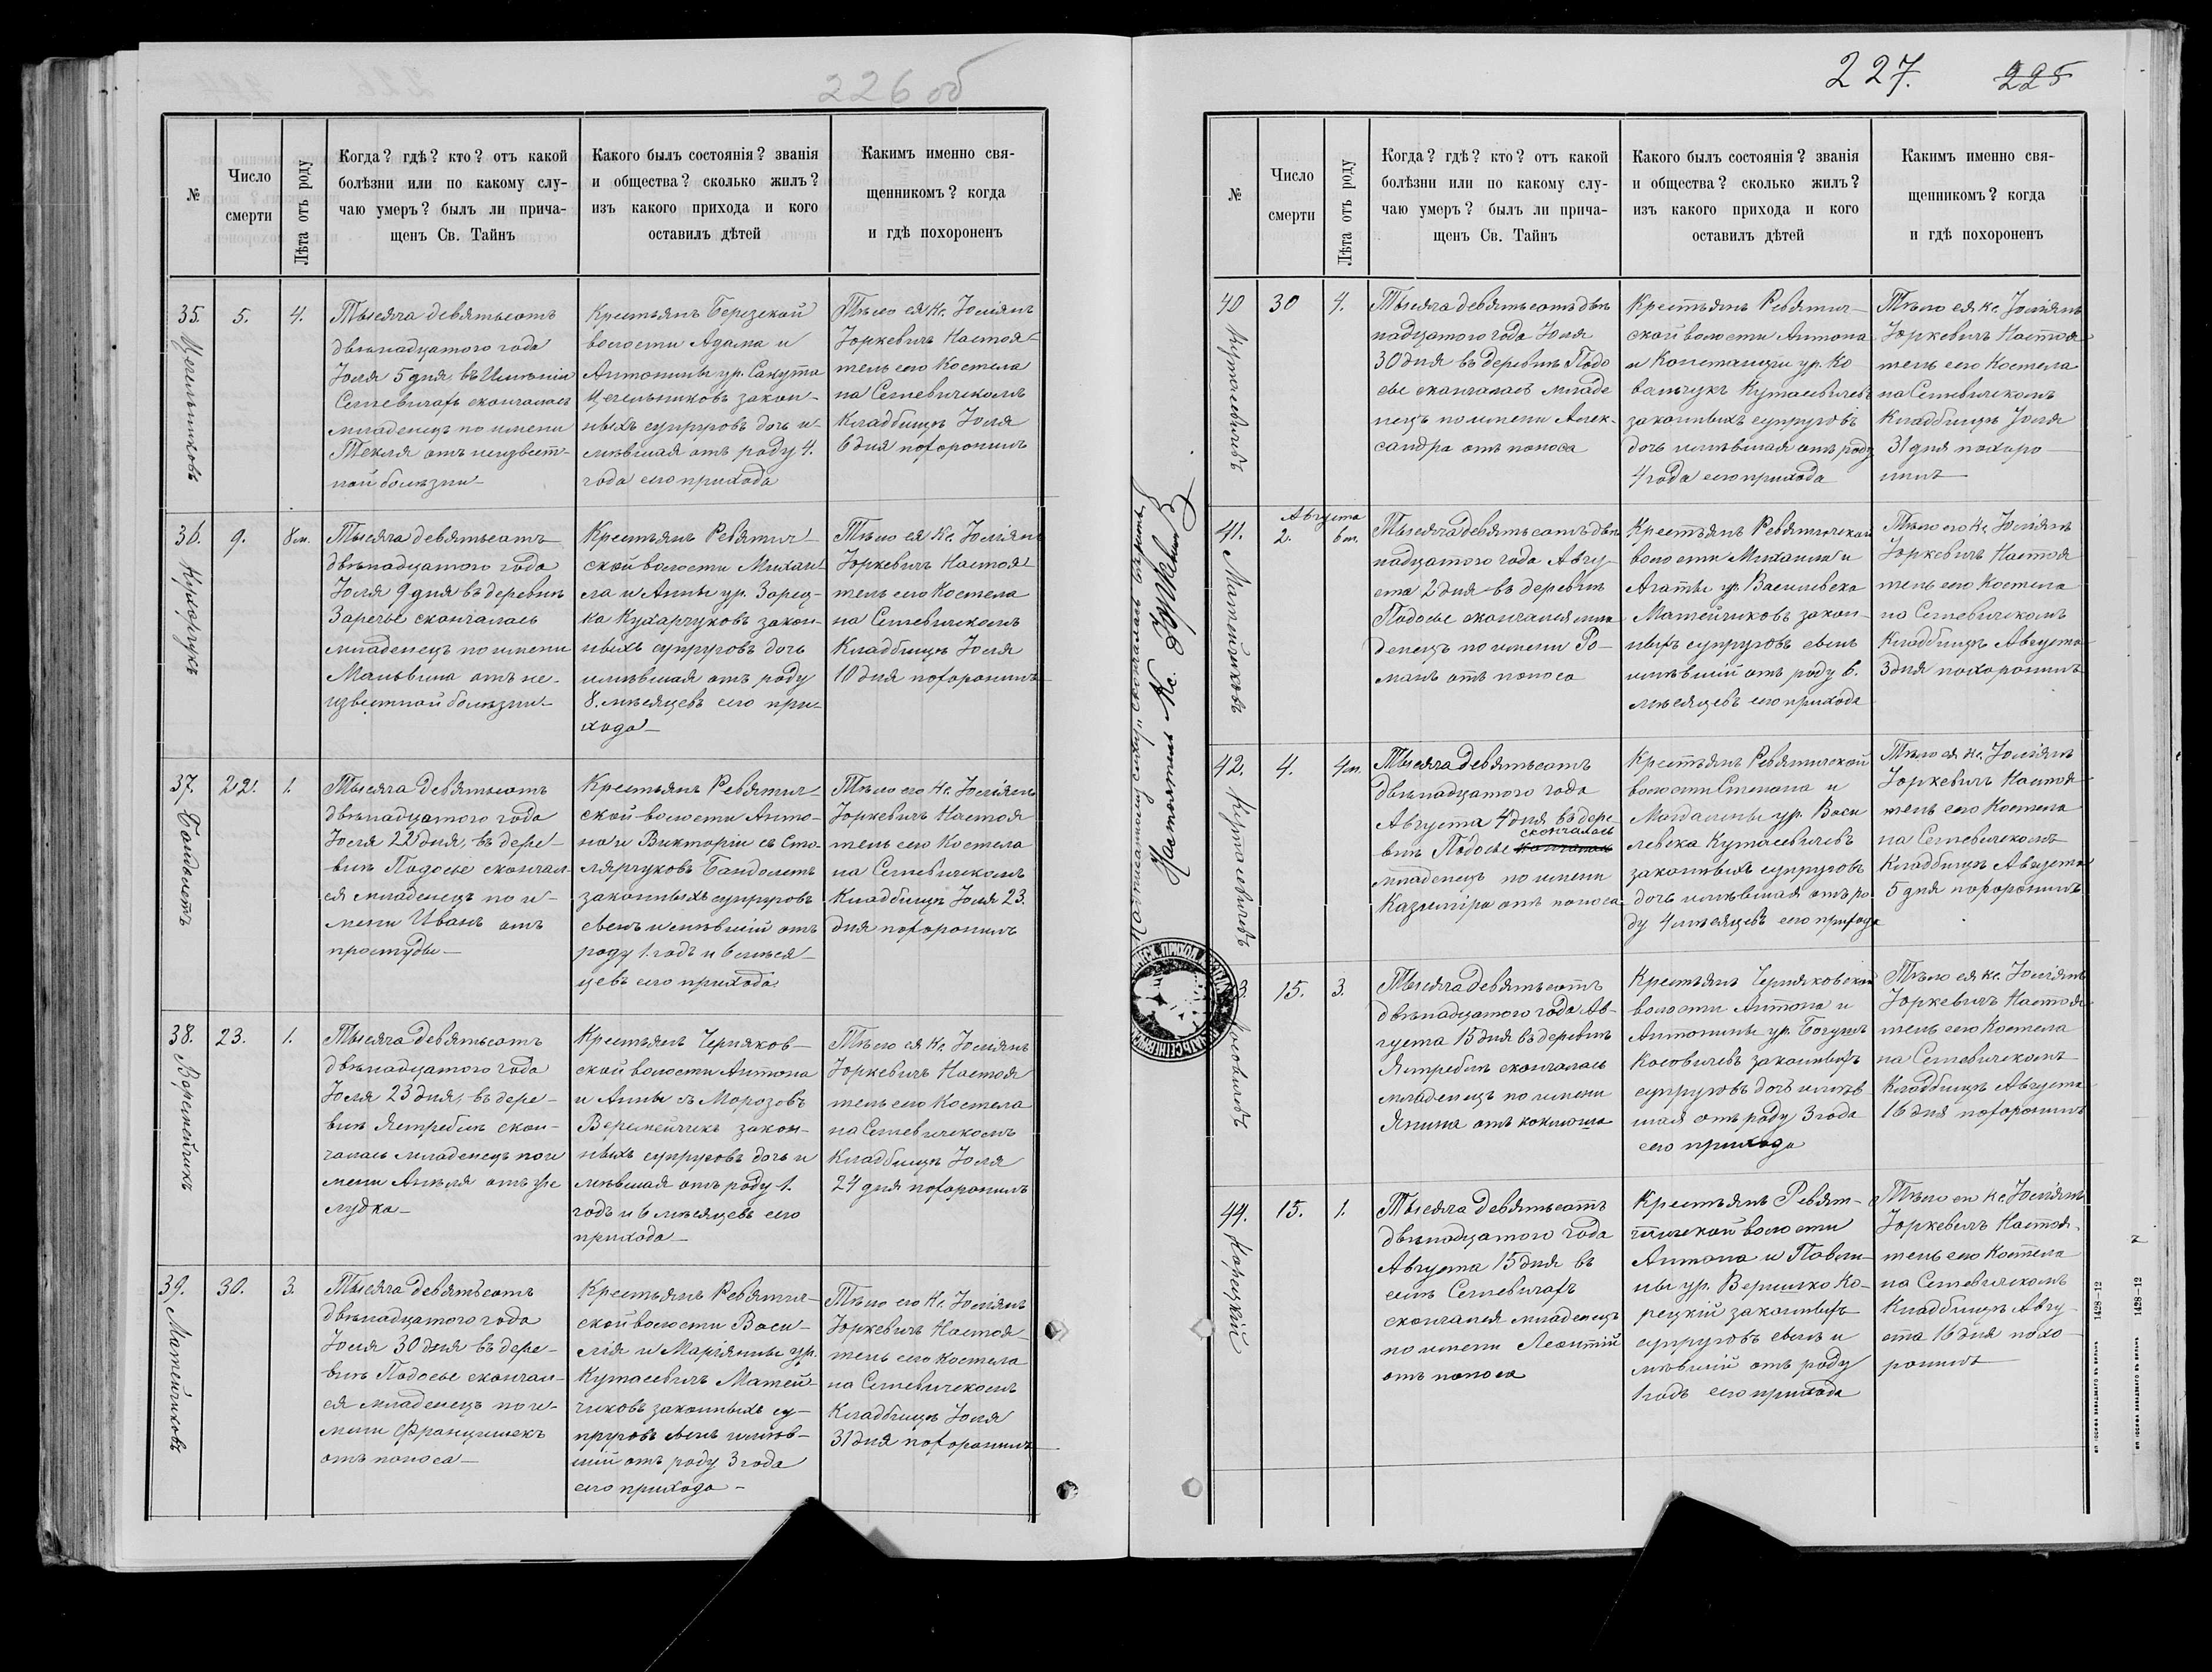 226 об
№
Число
смерти
Лѣта отъ роду
Когда? гдѣ? кто? отъ какой
болѣзни или по какому слу-
чаю умеръ? былъ ли прича-
щенъ Св. Тайнъ
Какого былъ состоянія? званія
и общества? сколько жилъ?
изъ какого прихода и кого
оставилъ дѣтей
Какимъ именно свя-
щенникомъ? когда
и гдѣ похороненъ
35.
Цегельниковъ
5.
4.
Тысяча девятьсотъ
двѣнадцатого года
Іюля 5 дня, въ Имѣніи
Сегневичахъ скончалась
младенецъ по имени
Текля отъ неизвест-
ной болѣзни
Крестьянъ Березской
волости Адама и
Антонины ур. Сакута
Цегельниковъ закон-
ныхъ супруговъ дочь и-
мѣвшая отъ роду 4.
года сего прихода
Тѣло ея Кс. Юліянъ
Юркевичъ Настоя-
тель сего Костела
на Сегневичскомъ
Кладбищѣ Іюля
6 дня похоронилъ
36.
Кухарчукъ
9.
8 м.
Тысяча девятьсотъ
двѣнадцатого года
Іюля 9 дня въ деревнѣ
Заречье скончалась
младенецъ по имени
Мальвина отъ не-
известной болѣзни
Крестьянъ Ревятич-
ской волости Михаи-
ла и Анны ур. Зарец-
ка Кухарчуковъ закон-
ныхъ супруговъ дочь
имѣвшая отъ роду
8. мѣсяцевъ сего при-
хода
Тѣло ея Кс. Юліянъ
Юркевичъ Настоя-
тель сего Костела
на Сегневичскомъ
Кладбищѣ Іюля
10 дня похоронилъ
37.
Бандолетъ
22.
1.
Тысяча девятьсотъ
двѣнадцатого года
Іюля 22 дня, въ дере-
внѣ Подосье скончал-
ся младенецъ по и-
мени Иванъ отъ
простуды
Крестьянъ Ревятич-
ской волости Анто-
на и Викторіи съ Сто-
лярчуковъ Бандолетъ
законныхъ супруговъ
сынъ имѣвшій отъ
роду 1. годъ и 6 мѣся-
цевъ сего прихода
Тѣло его Кс. Юліянъ
Юркевичъ Настоя
тель сего Костела
на Сегневичскомъ
Кладбищѣ Іюля 23.
дня похоронилъ
38.
Веремейчикъ
23.
1.
Тысяча девятьсотъ
двѣнадцатого года
Іюля 23 дня, въ дере-
внѣ Ястребль скон-
чалась младенецъ по и
мени Анѣля отъ же
лудка
Крестьянъ Черняков-
ской волости Антона
и Анны съ Морозовъ
Веремейчикъ закон-
ныхъ супруговъ дочь и
мѣвшая отъ роду 1.
годъ и 6 мѣсяцевъ сего
прихода
Тѣло ея Кс. Юліянъ
Юркевичъ Настоя
тель сего Костела
на Сегневичскомъ
Кладбищѣ Іюля
24 дня похоронилъ
39.
Матейчиковъ
30.
3.
Тысяча девятьсотъ
двѣнадцатого года
Іюля 30 дня въ дере-
внѣ Подосье скончал-
ся младенецъ по и-
мени Францишекъ
отъ поноса
Крестьянъ Ревятич-
ской волости Васи-
лія и Маріянны ур.
Кутасевичъ Матей
чиковъ законныхъ су-
пруговъ сынъ имѣв-
шій отъ роду 3 года
сего прихода
Тѣло его Кс. Юліянъ
Юркевичъ Настоя-
тель сего Костела
на Сегневичскомъ
Кладбищѣ Іюля
31 дня похоронилъ
Настоятель Кс. Юркевичъ
227.
225
№
Число
смерти
Лѣта отъ роду
Когда? гдѣ? кто? отъ какой
болѣзни или по какому слу-
чаю умеръ? былъ ли прича-
щенъ Св. Тайнъ
Какого былъ состоянія? званія
и общества? сколько жилъ?
изъ какого прихода и кого
оставилъ дѣтей
Какимъ именно свя-
щенникомъ? когда
и гдѣ похороненъ
40
Кутасевичевъ
30
4.
Тысяча девятьсотъ двѣ
надцатого года Іюля
30 дня въ деревнѣ Подо
сье скончалась младе
нецъ по имени Алек-
сандра отъ поноса
Крестьянъ Ревятич-
ской волости Антона
и Констанціи ур. Ко
вальчукъ Кутасевичевъ
законныхъ супруговъ
дочь имѣвшая отъ роду
4 года сего прихода
Тѣло ея Кс. Юліянъ
Юркевичъ Настоя
тель сего Костела
на Сегневичскомъ
Кладбищѣ Іюля
31 дня похоро-
нилъ
41.
Матейчиковъ
Августа
2.
6 м.
Тысяча девятьсотъ двѣ
надцатого года Авгу-
ста 2 дня въ деревнѣ
Подосье скончался мла
денецъ по имени Ро-
манъ отъ поноса
Крестьянъ Ревятичской
волости Михаила и
Агаты ур. Василевска
Матейчиковъ закон-
ныхъ супруговъ сынъ
имѣвшій отъ роду 6.
мѣсяцевъ сего прихода
Тѣло его Кс. Юліянъ
Юркевичъ Настоя
тель сего Костела
на Сегневичскомъ
Кладбищѣ Августа
3 дня похоронилъ
42.
Кутасевичевъ
4.
4 м.
Тысяча девятьсотъ
двѣнадцатого года
Августа 4 дня въ дере
скончалась
внѣ Подосье
младенецъ по имени
Казиміра отъ поноса
Крестьянъ Ревятичской
волости Степана и
Магдалены ур. Васи
левска Кутасевичевъ
законныхъ супруговъ
дочь имѣвшая отъ ро-
ду 4 мѣсяцевъ сего прихода
Тѣло ея Кс. Юліянъ
Юркевичъ Настоя-
тель сего Костела
на Сегневичскомъ
Кладбищѣ Августа
5 дня похоронилъ
Косовичевъ
15.
3.
Тысяча девятьсотъ
двѣнадцатого года Ав-
густа 15 дня въ деревнѣ
Ястребль скончалась
младенецъ по имени
Янина отъ коклюша
Крестьянъ Черняковской
волости Антона и
Антонины ур. Богушъ
Косовичевъ законныхъ
супруговъ дочь имѣв
шая отъ роду 3 года
сего прихода
Тѣло ея Кс. Юліянъ
Юркевичъ Настоя
тель сего Костела
на Сегневичскомъ
Кладбищѣ Августа
16 дня похоронилъ
44.
Корецкій
15.
1.
Тысяча девятьсотъ
двѣнадцатого года
Августа 15 дня въ
селѣ Сегневичахъ
скончался младенецъ
по имени Леонтій
отъ поноса
Крестьянъ Ревят-
тичской волости
Антона и Павли-
ны ур. Вершко Ко-
рецкій законныхъ
супруговъ сынъ и
мѣвшій отъ роду
1 годъ сего прихода
Тѣло ея Кс. Юліянъ
Юркевичъ Настоя-
тель сего Костела
на Сегневичскомъ
Кладбищѣ Авгу-
ста 16 дня похо-
ронилъ
1428—12
1428—12